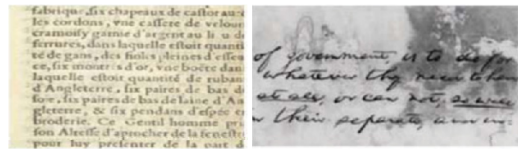 fabrique, six chapeaux de castor au
les cordons, vne cassete de velour
cramoisy garnie d'argent au li u d
ferrures, dans laquelle estoit quanti
té de gans, des fioles pleines d'essen
ce, six montres d'or, vne boëte dans
laquelle estoit quantité de ruban
d'Angleterre, six paires de bas d
soye, six paires de bas de laine d'An
gleterre, & six pendans d'espée e
broderie. Ce Gentil homme pri
son Altesse d'aprocher de la fenestr
pour luy presenter de la part d
of government, is to do for
whatever they need to have
at all, or can not, so well
their separate, and in